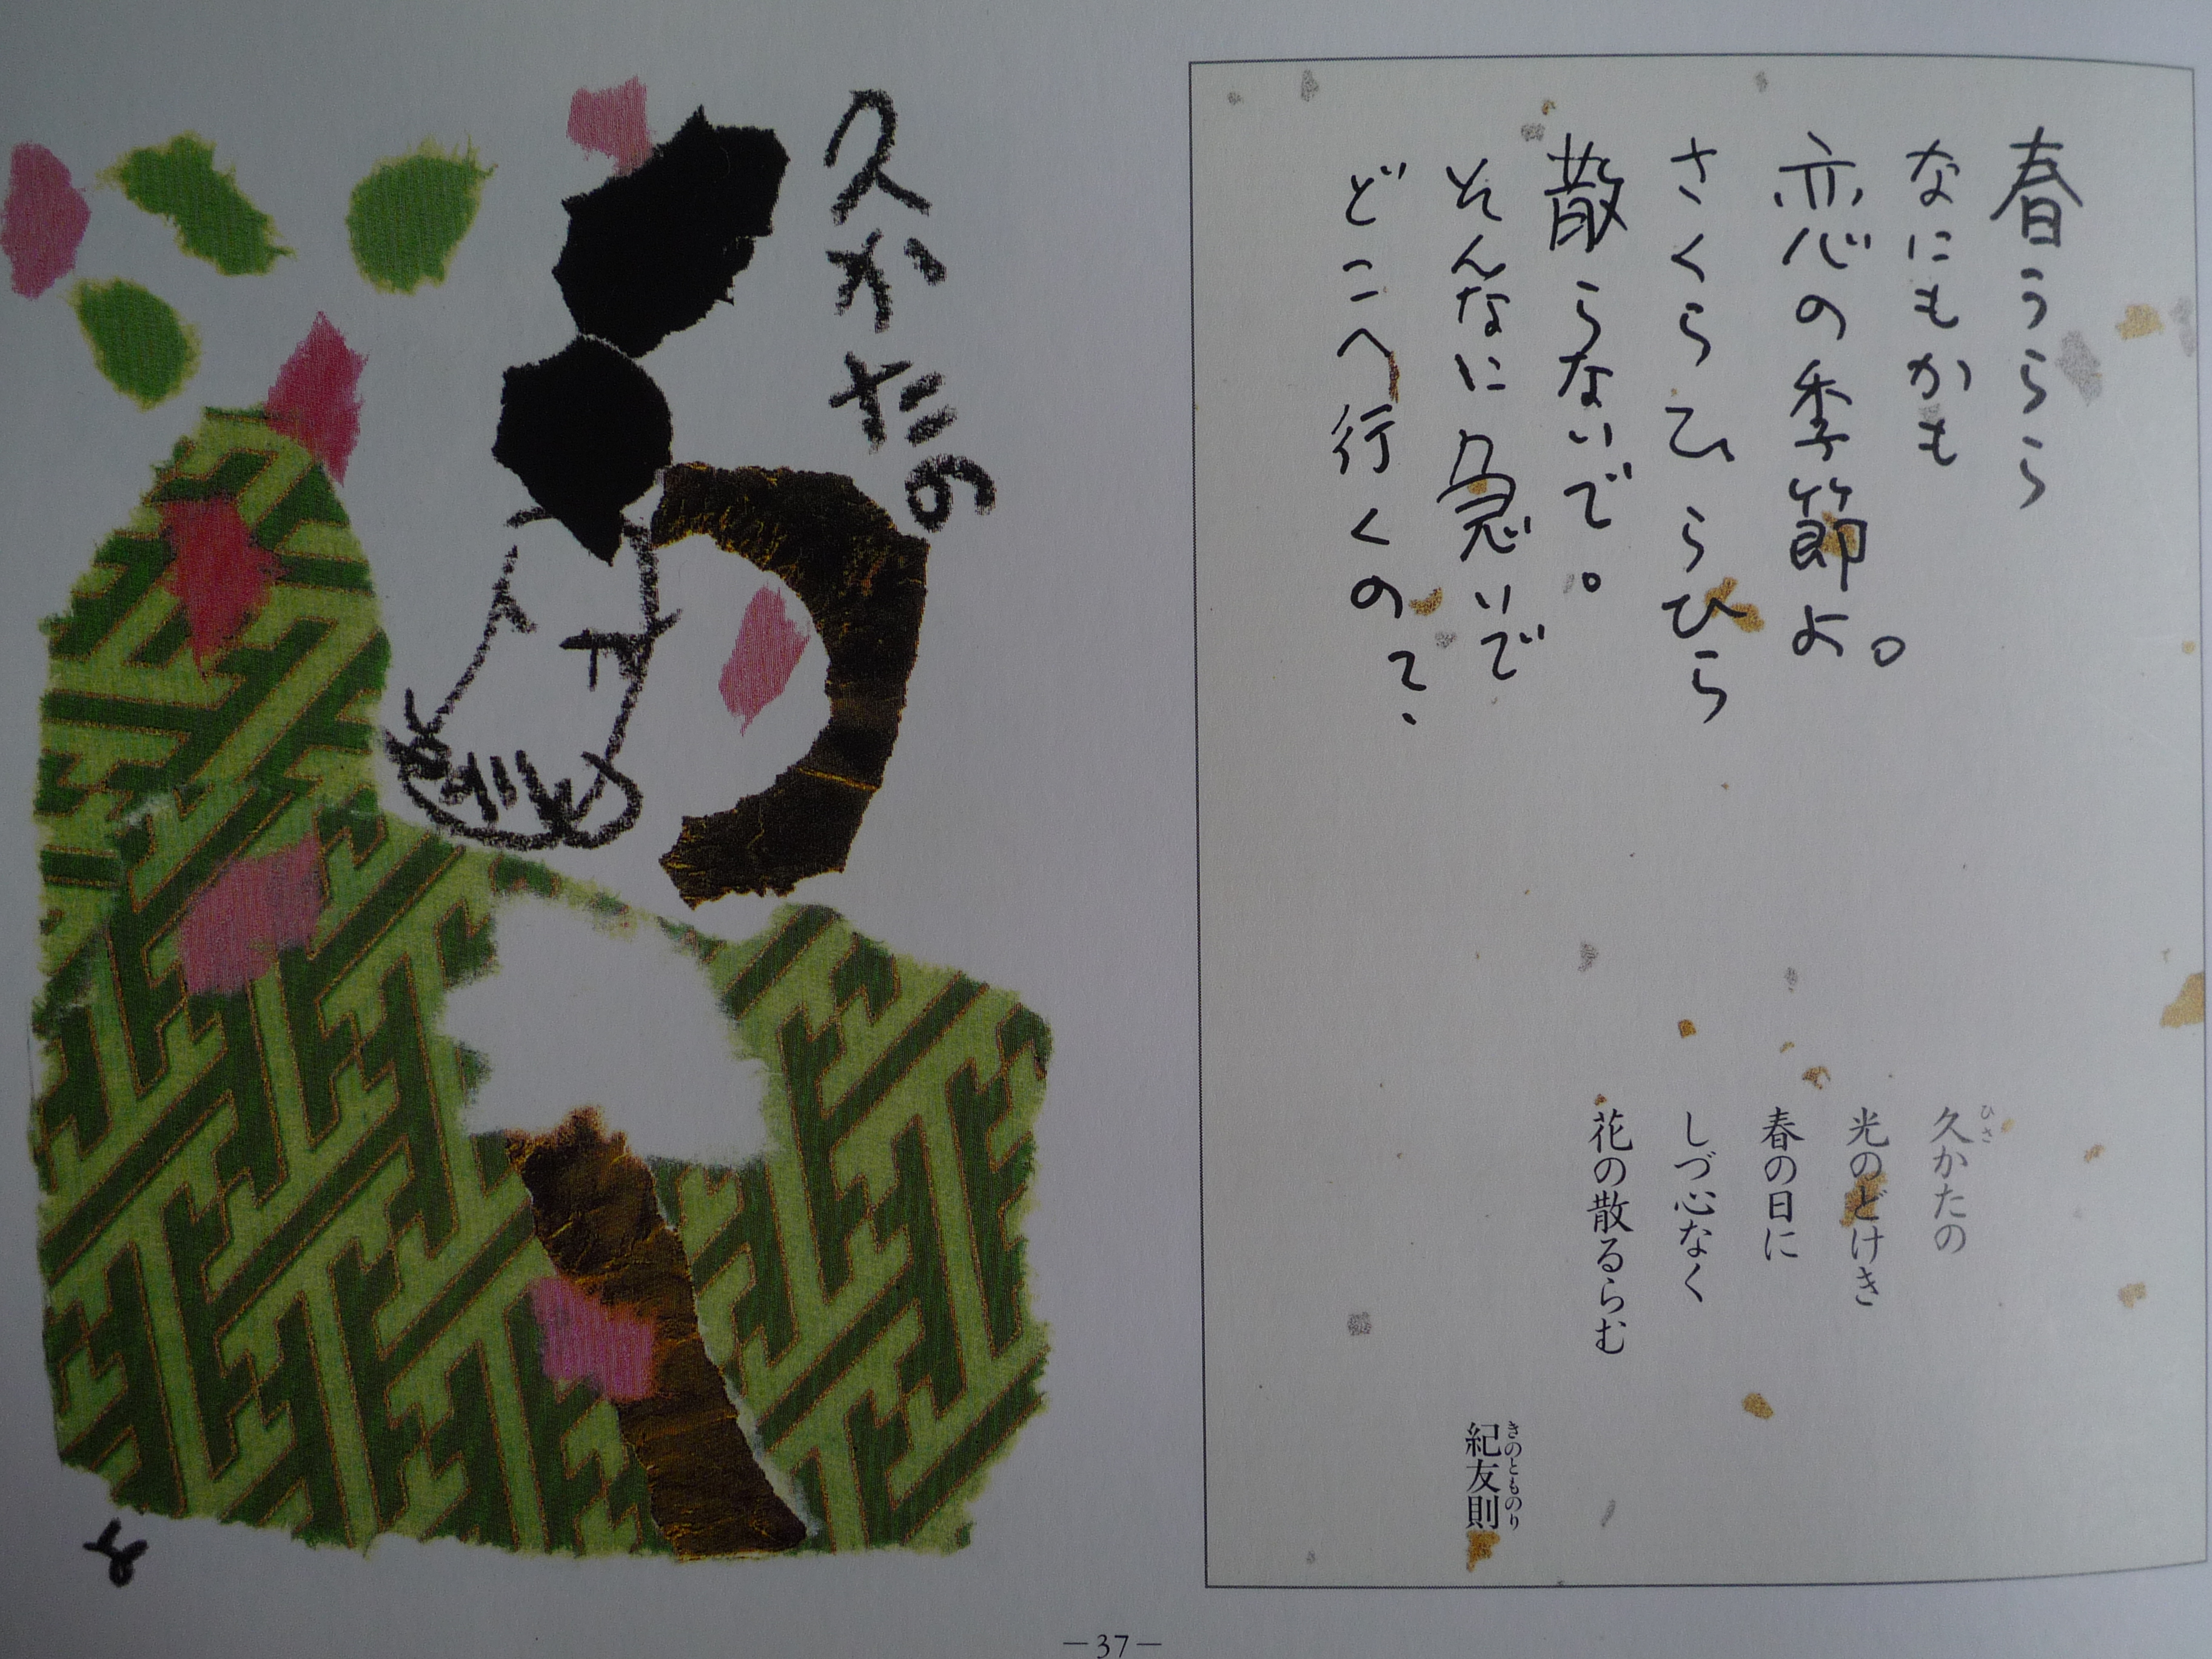 春うらら
なにもかも
恋の季節よ。
さくらひらひら
散らないで。
そんなに急いで
どこへ行くのて、
久かたの
ひさ
光のどけき
春の日に
しづ心なく
花の散るらむ
紀友則
きのとものり
久かたの
—37—